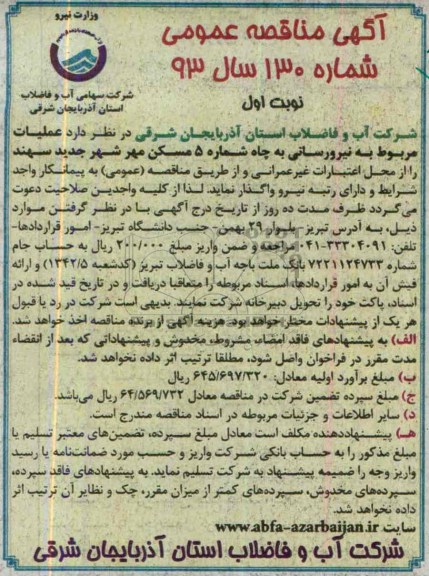 وزارت نیرو
شرکت سهامی آب و فاضلاب
استان آذربایجان شرقی
آگهی مناقصه عمومی
شماره ۱۳۰ سال ۹۳
نوبت اول
شرکت آب و فاضلاب استان آذربایجان شرقی در نظر دارد عملیات
مربوط به نیرورسانی به چاه شماره ۵ مسکن مهر شهر جدید سهند
را از محل اعتبارات غیرعمرانی و از طریق مناقصه (عمومی) به پیمانکار واجد
شرایط و دارای رتبه نیرو واگذار نماید. لذا از کلیه واجدین صلاحیت دعوت
می‌گردد ظرف مدت ده روز از تاریخ درج آگهی با در نظر گرفتن موارد
ذیل، به آدرس تبریز- بلوار ۲۹ بهمن- جنب دانشگاه تبریز- امور قراردادها-
تلفن: ۳۳۳۰۴۰۹۱-۰۴۱ مراجعه و ضمن واریز مبلغ ۲۰۰/۰۰۰ ریال به حساب جام
شماره ۷۲۲۱۱۲۴۷۳۳ بانک ملت باجه آب و فاضلاب تبریز (کدشعبه ۱۳۴۲/۵) و ارائه
فیش آن به امور قراردادها، اسناد مربوطه را متعاقبا دریافت و در تاریخ قید شده در
اسناد، پاکت خود را تحویل دبیرخانه شرکت نمایند. بدیهی است شرکت در رد یا قبول
هر یک از پیشنهادات مختار خواهد بود. هزینه آگهی از برنده مناقصه اخذ خواهد شد.
الف) به پیشنهادهای فاقد امضاء، مشروط، مخدوش و پیشنهاداتی که بعد از انقضاء
مدت مقرر در فراخوان واصل شود، مطلقا ترتیب اثر داده نخواهد شد.
ب) مبلغ برآورد اولیه معادل: ۶۴۵/۶۹۷/۳۲۰ ریال
ج) مبلغ سپرده تضمین شرکت در مناقصه معادل ۶۴/۵۶۹/۷۳۲ ریال می‌باشد.
د) سایر اطلاعات و جزئیات مربوطه در اسناد مناقصه مندرج است.
هـ) پیشنهاددهنده مکلف است معادل مبلغ سپرده، تضمین‌های معتبر تسلیم یا
مبلغ مذکور را به حساب بانکی شرکت واریز و حسب مورد ضمانت‌نامه یا رسید
واریز وجه را ضمیمه پیشنهاد به شرکت تسلیم نماید. به پیشنهادهای فاقد سپرده،
سپرده‌های مخدوش، سپرده‌های کمتر از میزان مقرر، چک و نظایر آن ترتیب اثر
داده نخواهد شد.
سایت www.abfa-azarbaijan.ir
شرکت آب و فاضلاب استان آذربایجان شرقی